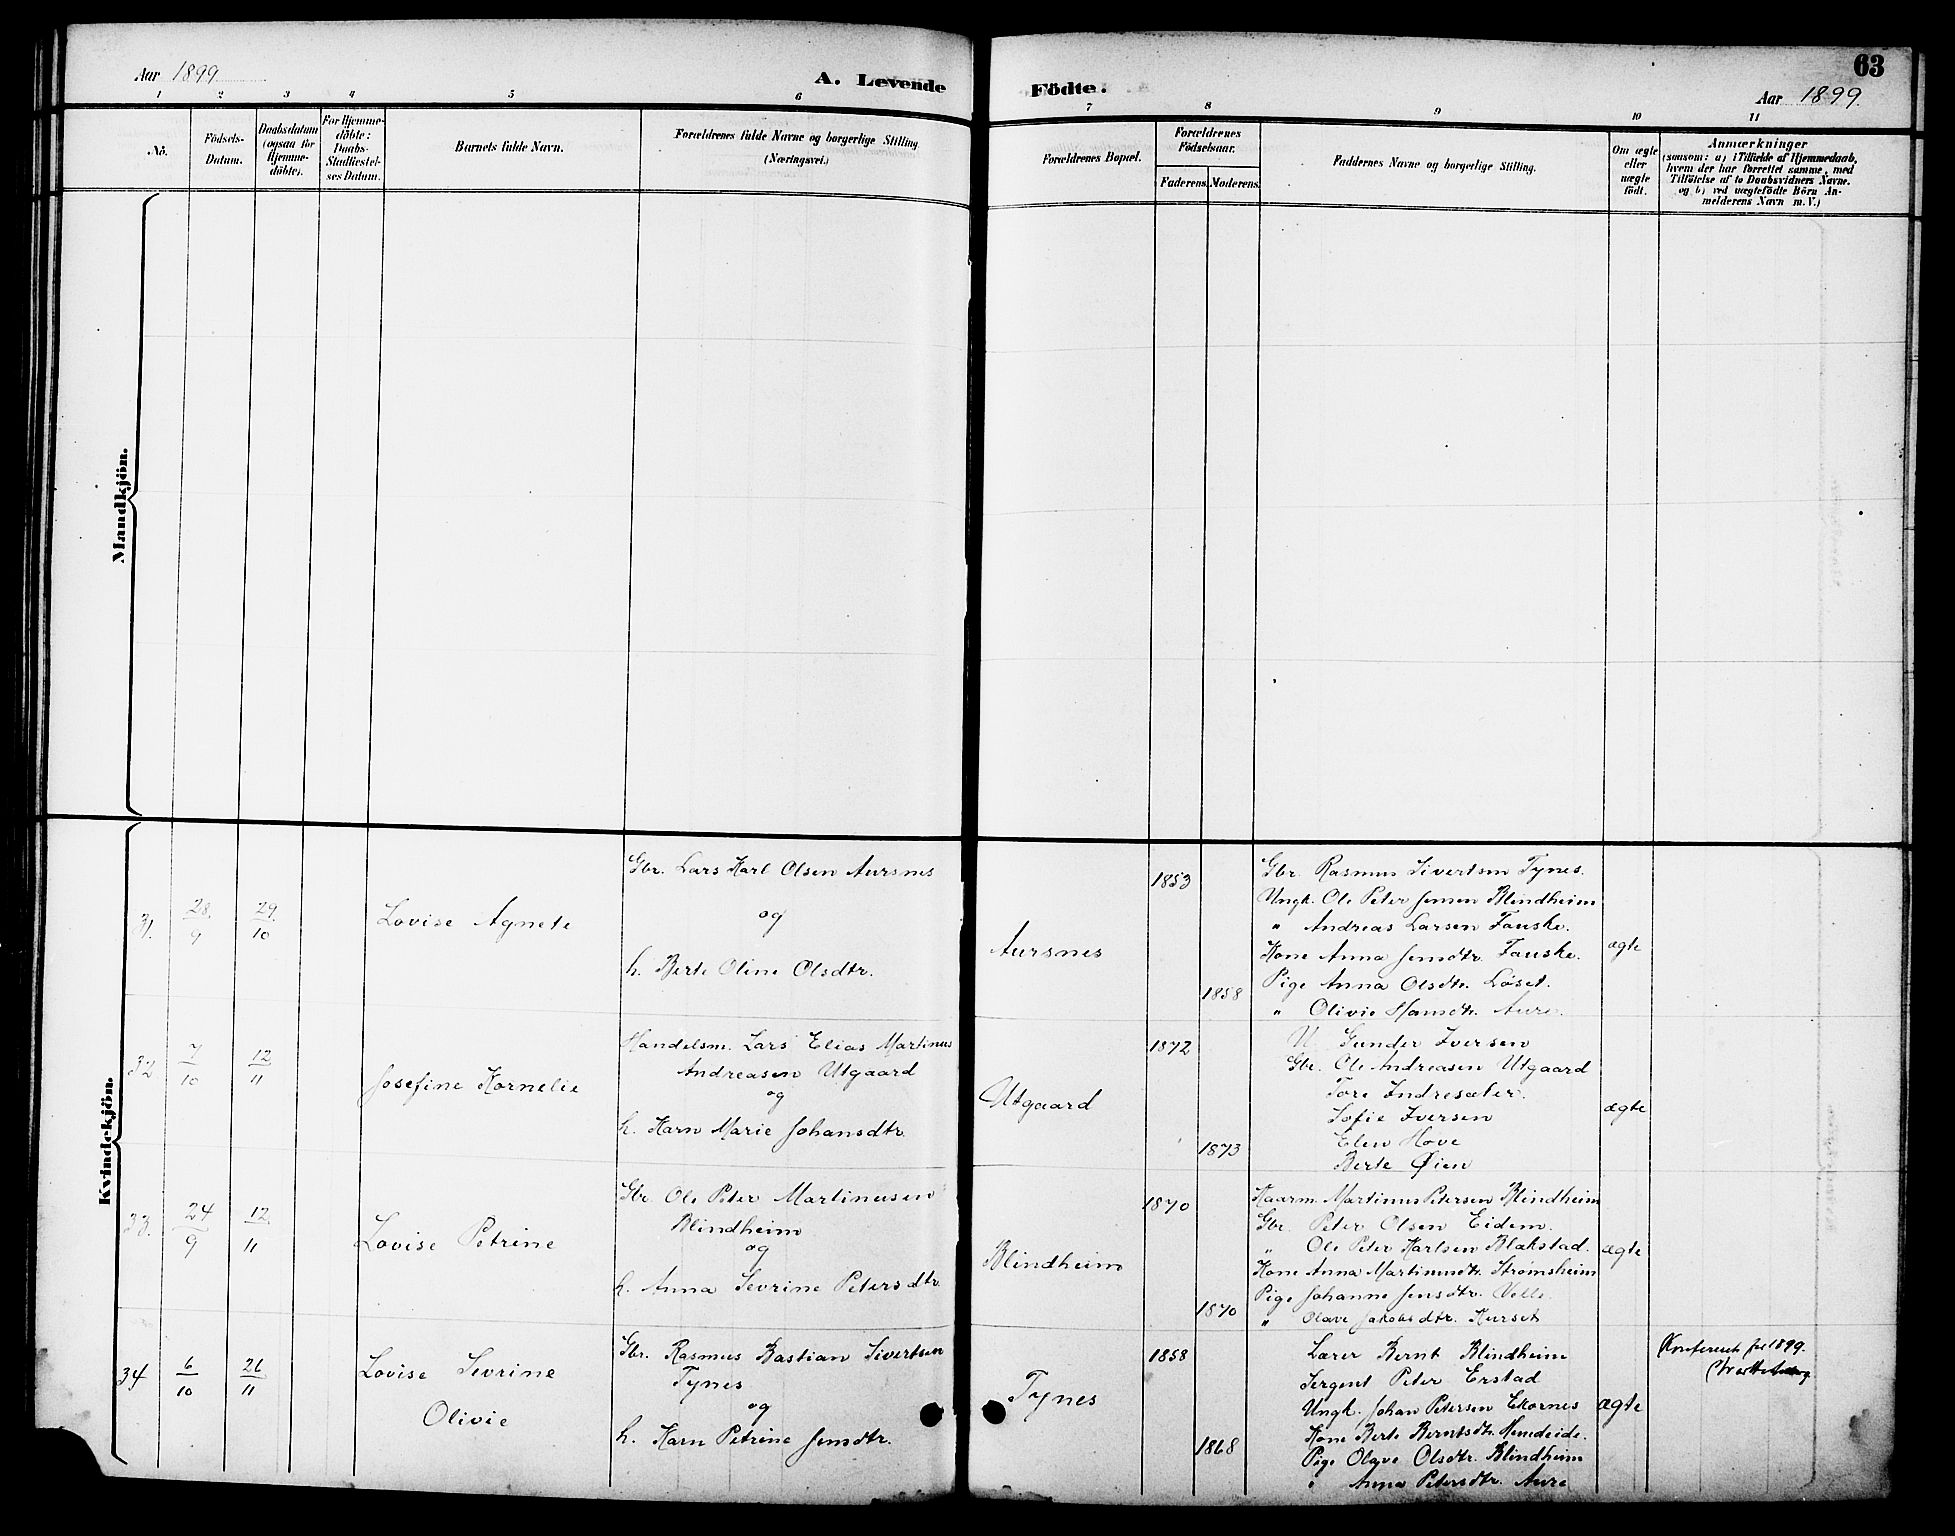 Aar 1899
A. Levende Fødte.
63
Aar 1899
1 2 3 4 5 6 7 8 9 10 11
No.
Födsels-Datum.
Daabsdatum (ogsaa for Hjemme-döbte).
For Hjemme-döbte: Daabs-Stadfæstel-ses Datum.
Barnets fulde Navn.
Forældrenes fulde Navne og borgerlige Stilling (Næringsvei.)
Forældrenes Bopæl.
Forældrenes Födselsaar.
Faderens. Moderens.
Faddernes Navne og borgerlige Stilling.
Om ægte eller uægte födt.
Anmærkninger
(saasom: a) i Tilfælde af Hjemmedaab, hvem der har forrettet samme, med Tilföielse af to Daabsvidners Navne. og b) ved uægtefödte Börn An-melderens Navn m.V.)
Mandkjön.
Kvindekjön.
31. 28/9 29/10 Lovise Agnete
Gbr. Lars Karl Olsen Aursnes
og
h. Berte Oline Olsdtr.
Aursnes
1853
1858
Gbr. Rasmus Sivertsen Tynes.
Ungk. Ole Peter Jensen Blindheim
" Andreas Larsen Fauske.
Kone Anna Jensdtr. Fauske.
Pige Anna Olsdtr. Løset.
" Olivie Hansdtr. Aure.
ægte
32 7/10 12/11 Josefine Kornelie
Handelsm. Lars Elias Martinus
Andreasen Utgaard
og
h. Karn Marie Johansdtr.
Utgaard
1872
1873
U. Gunder Iversen
Gbr. Ole Andreasen Utgaard
Tore Indresæter.
Sofie Iversen
Elen Hove
Berte Øien
ægte
33. 24/9 12/11 Lovise Petrine
Gbr. Ole Peter Martinusen
Blindheim
og
h. Anna Sevrine Petersdtr.
Blindheim
1870
1870
Kaarm. Martinus Petersen Blindheim
Gbr. Peter Olsen Eidem.
" Ole Peter Karlsen Blakstad.
Kone Anna Martinusdtr. Strømsheim
Pige Johanne Jensdtr. Velle.
" Olave Jakobsdtr. Hurset
ægte
34 6/10 26/11 Lovise Sevrine
Olivie
Gbr. Rasmus Bastian Sivertsen
Tynes
og
h. Karn Petrine Jensdtr.
Tynes
1858
1868
Lærer Bernt Blindheim
Sergent Peter Erstad
Ungk. Johan Petersen Ekornes
Kone Berte Berntsdtr. Hemdeide.
Pige Olave Olsdtr. Blindheim
" Anna Petersdtr. Aure
ægte
Konfereret for 1899.